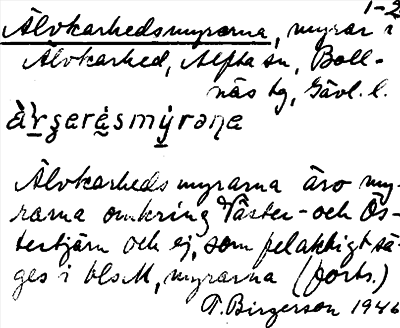 1-2
Älvkarhedsmyrarna, myrar i
Älvkarhed, Alfta sn, Boll-
näs tg, Gävl. l.
Älvkarhedsmyrarna äro my-
rarna omkring Väster- och Ös-
tertjärn och ej, som felaktigt sä-
ges i bl s M, myrarna (forts.)
T. Birgerson 1946